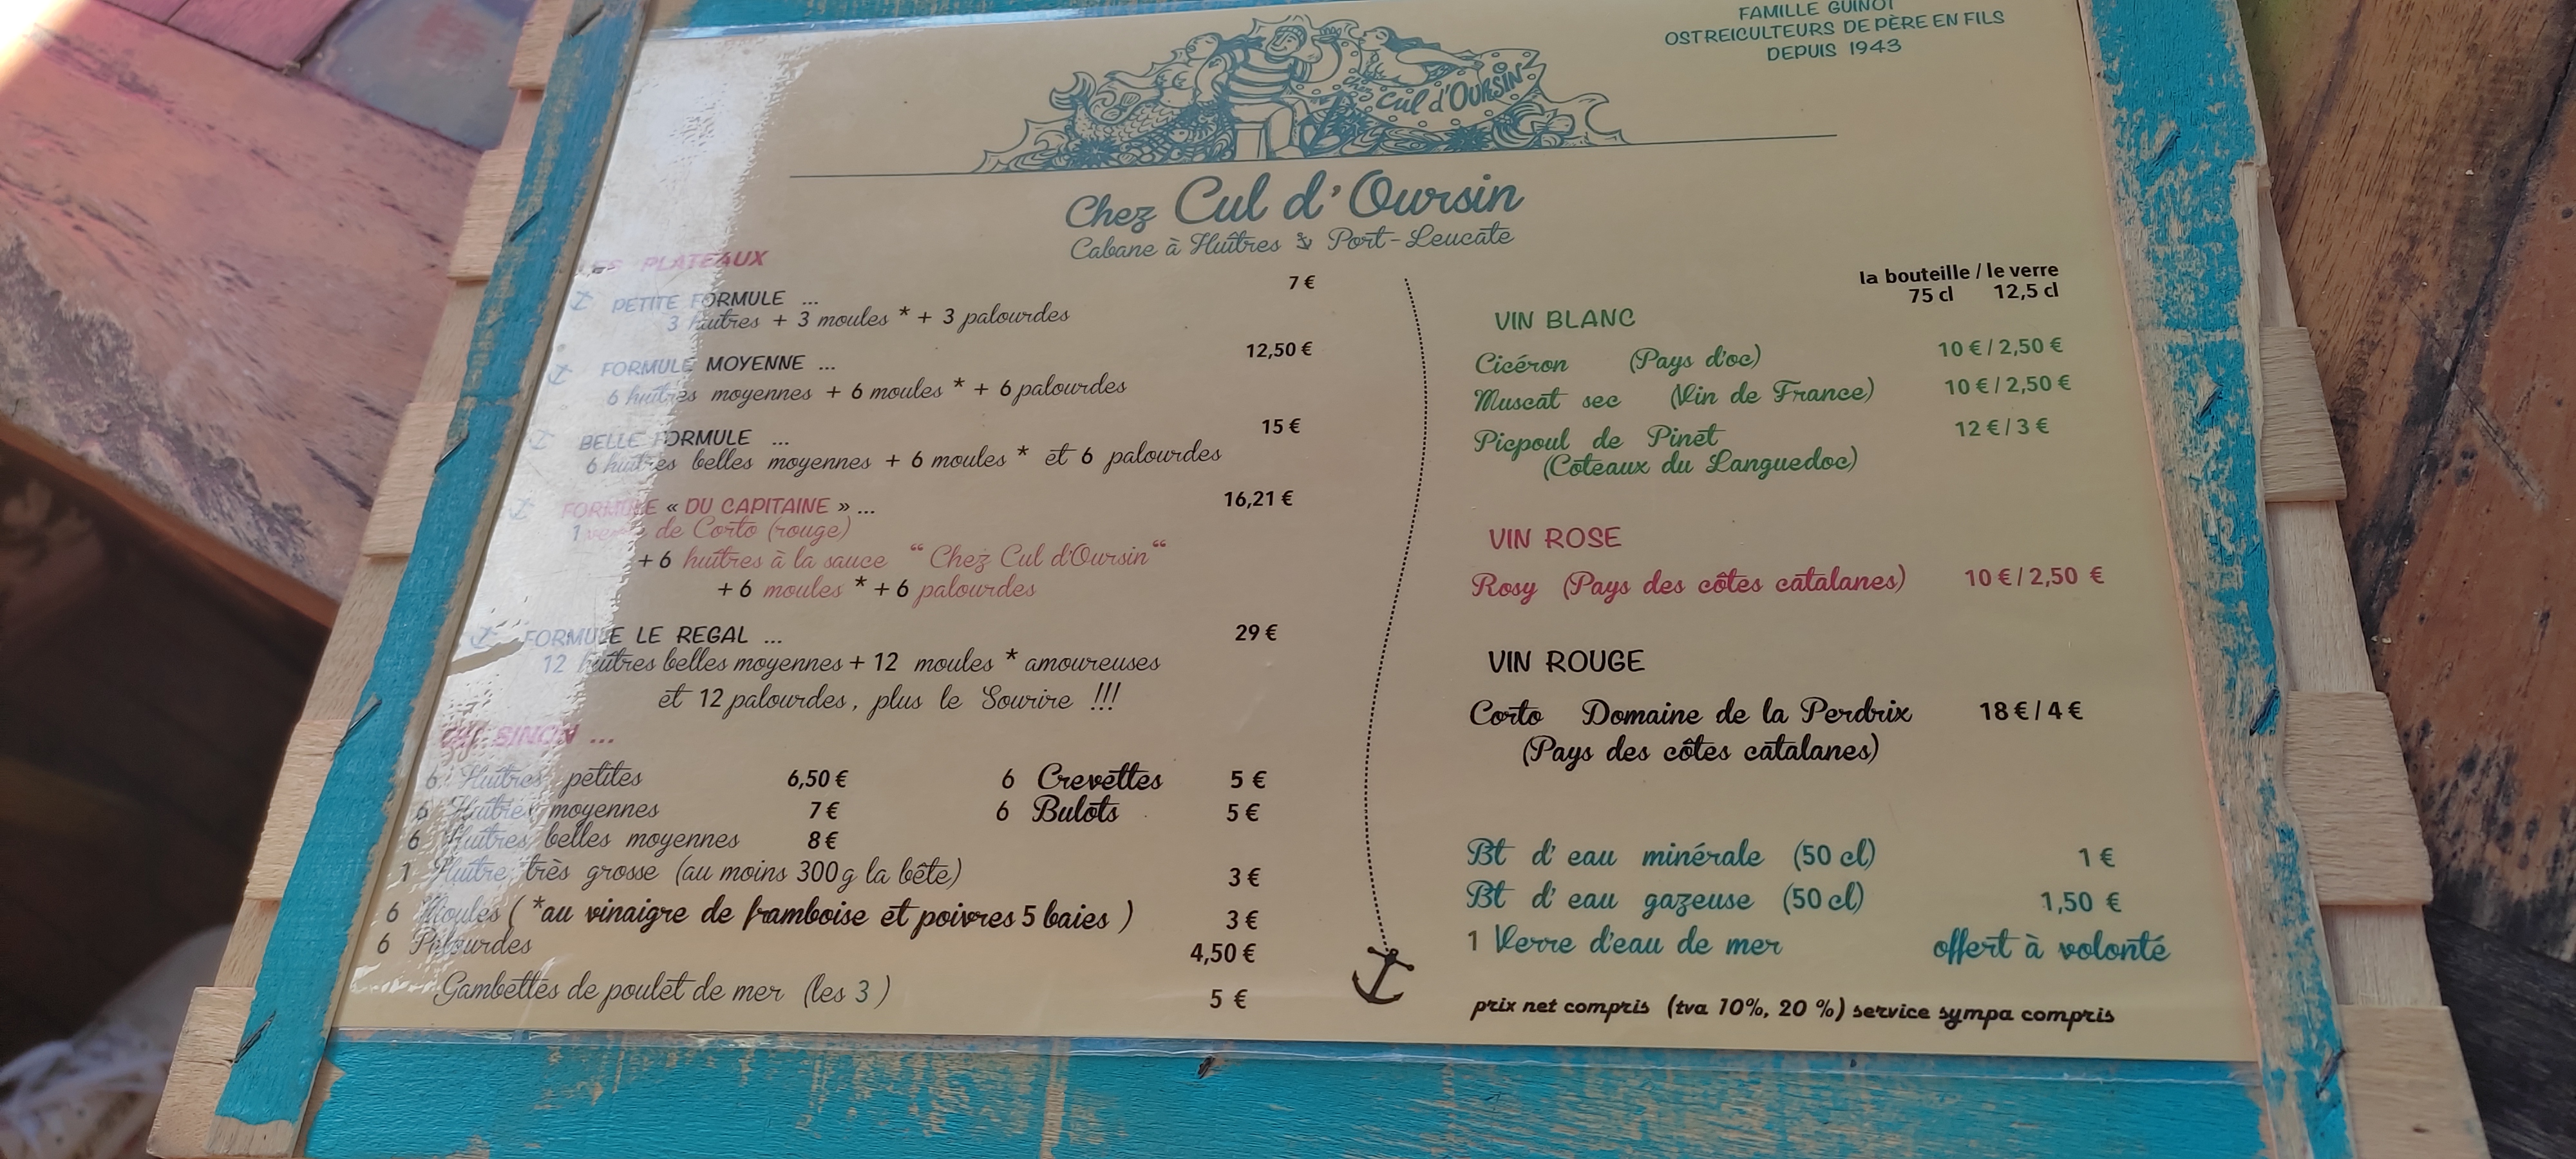 FAMILLE GUINOT
OSTREICULTEURS DE PÈRE EN FILS
DEPUIS 1943
Chez Cul d'OURSIN
Chez Cul d'Oursin
Cabane à Huîtres Port-Leucate
LES PLATEAUX
PETITE FORMULE ... 7 €
3 huîtres + 3 moules * + 3 palourdes
FORMULE MOYENNE ... 12,50 €
6 huîtres moyennes + 6 moules * + 6 palourdes
BELLE FORMULE ... 15 €
6 huîtres belles moyennes + 6 moules * et 6 palourdes
FORMULE « DU CAPITAINE » ... 16,21 €
1 verre de Corto (rouge)
+ 6 huîtres à la sauce “ Chez Cul d'Oursin“
+ 6 moules * + 6 palourdes
FORMULE LE REGAL ... 29 €
12 huîtres belles moyennes + 12 moules * amoureuses
et 12 palourdes, plus le Sourire !!!
SINON ...
6 Huîtres petites 6,50 €
6 Huîtres moyennes 7 €
6 Huîtres belles moyennes 8 €
6 Crevettes 5 €
6 Bulots 5 €
1 Huître très grosse (au moins 300g la bête) 3 €
6 Moules ( *au vinaigre de framboise et poivres 5 baies ) 3 €
6 Palourdes 4,50 €
Gambettes de poulet de mer (les 3 ) 5 €
la bouteille / le verre
75 cl 12,5 cl
VIN BLANC
Cicéron (Pays d'oc) 10 € / 2,50 €
Muscat sec (Vin de France) 10 € / 2,50 €
Picpoul de Pinet 12 € / 3 €
(Coteaux du Languedoc)
VIN ROSE
Rosy (Pays des côtes catalanes) 10 € / 2,50 €
VIN ROUGE
Corto Domaine de la Perdrix 18 € / 4 €
(Pays des côtes catalanes)
Bt d' eau minérale (50 cl) 1 €
Bt d' eau gazeuse (50 cl) 1,50 €
1 Verre d'eau de mer offert à volonté
prix net compris (tva 10%, 20 %) service sympa compris